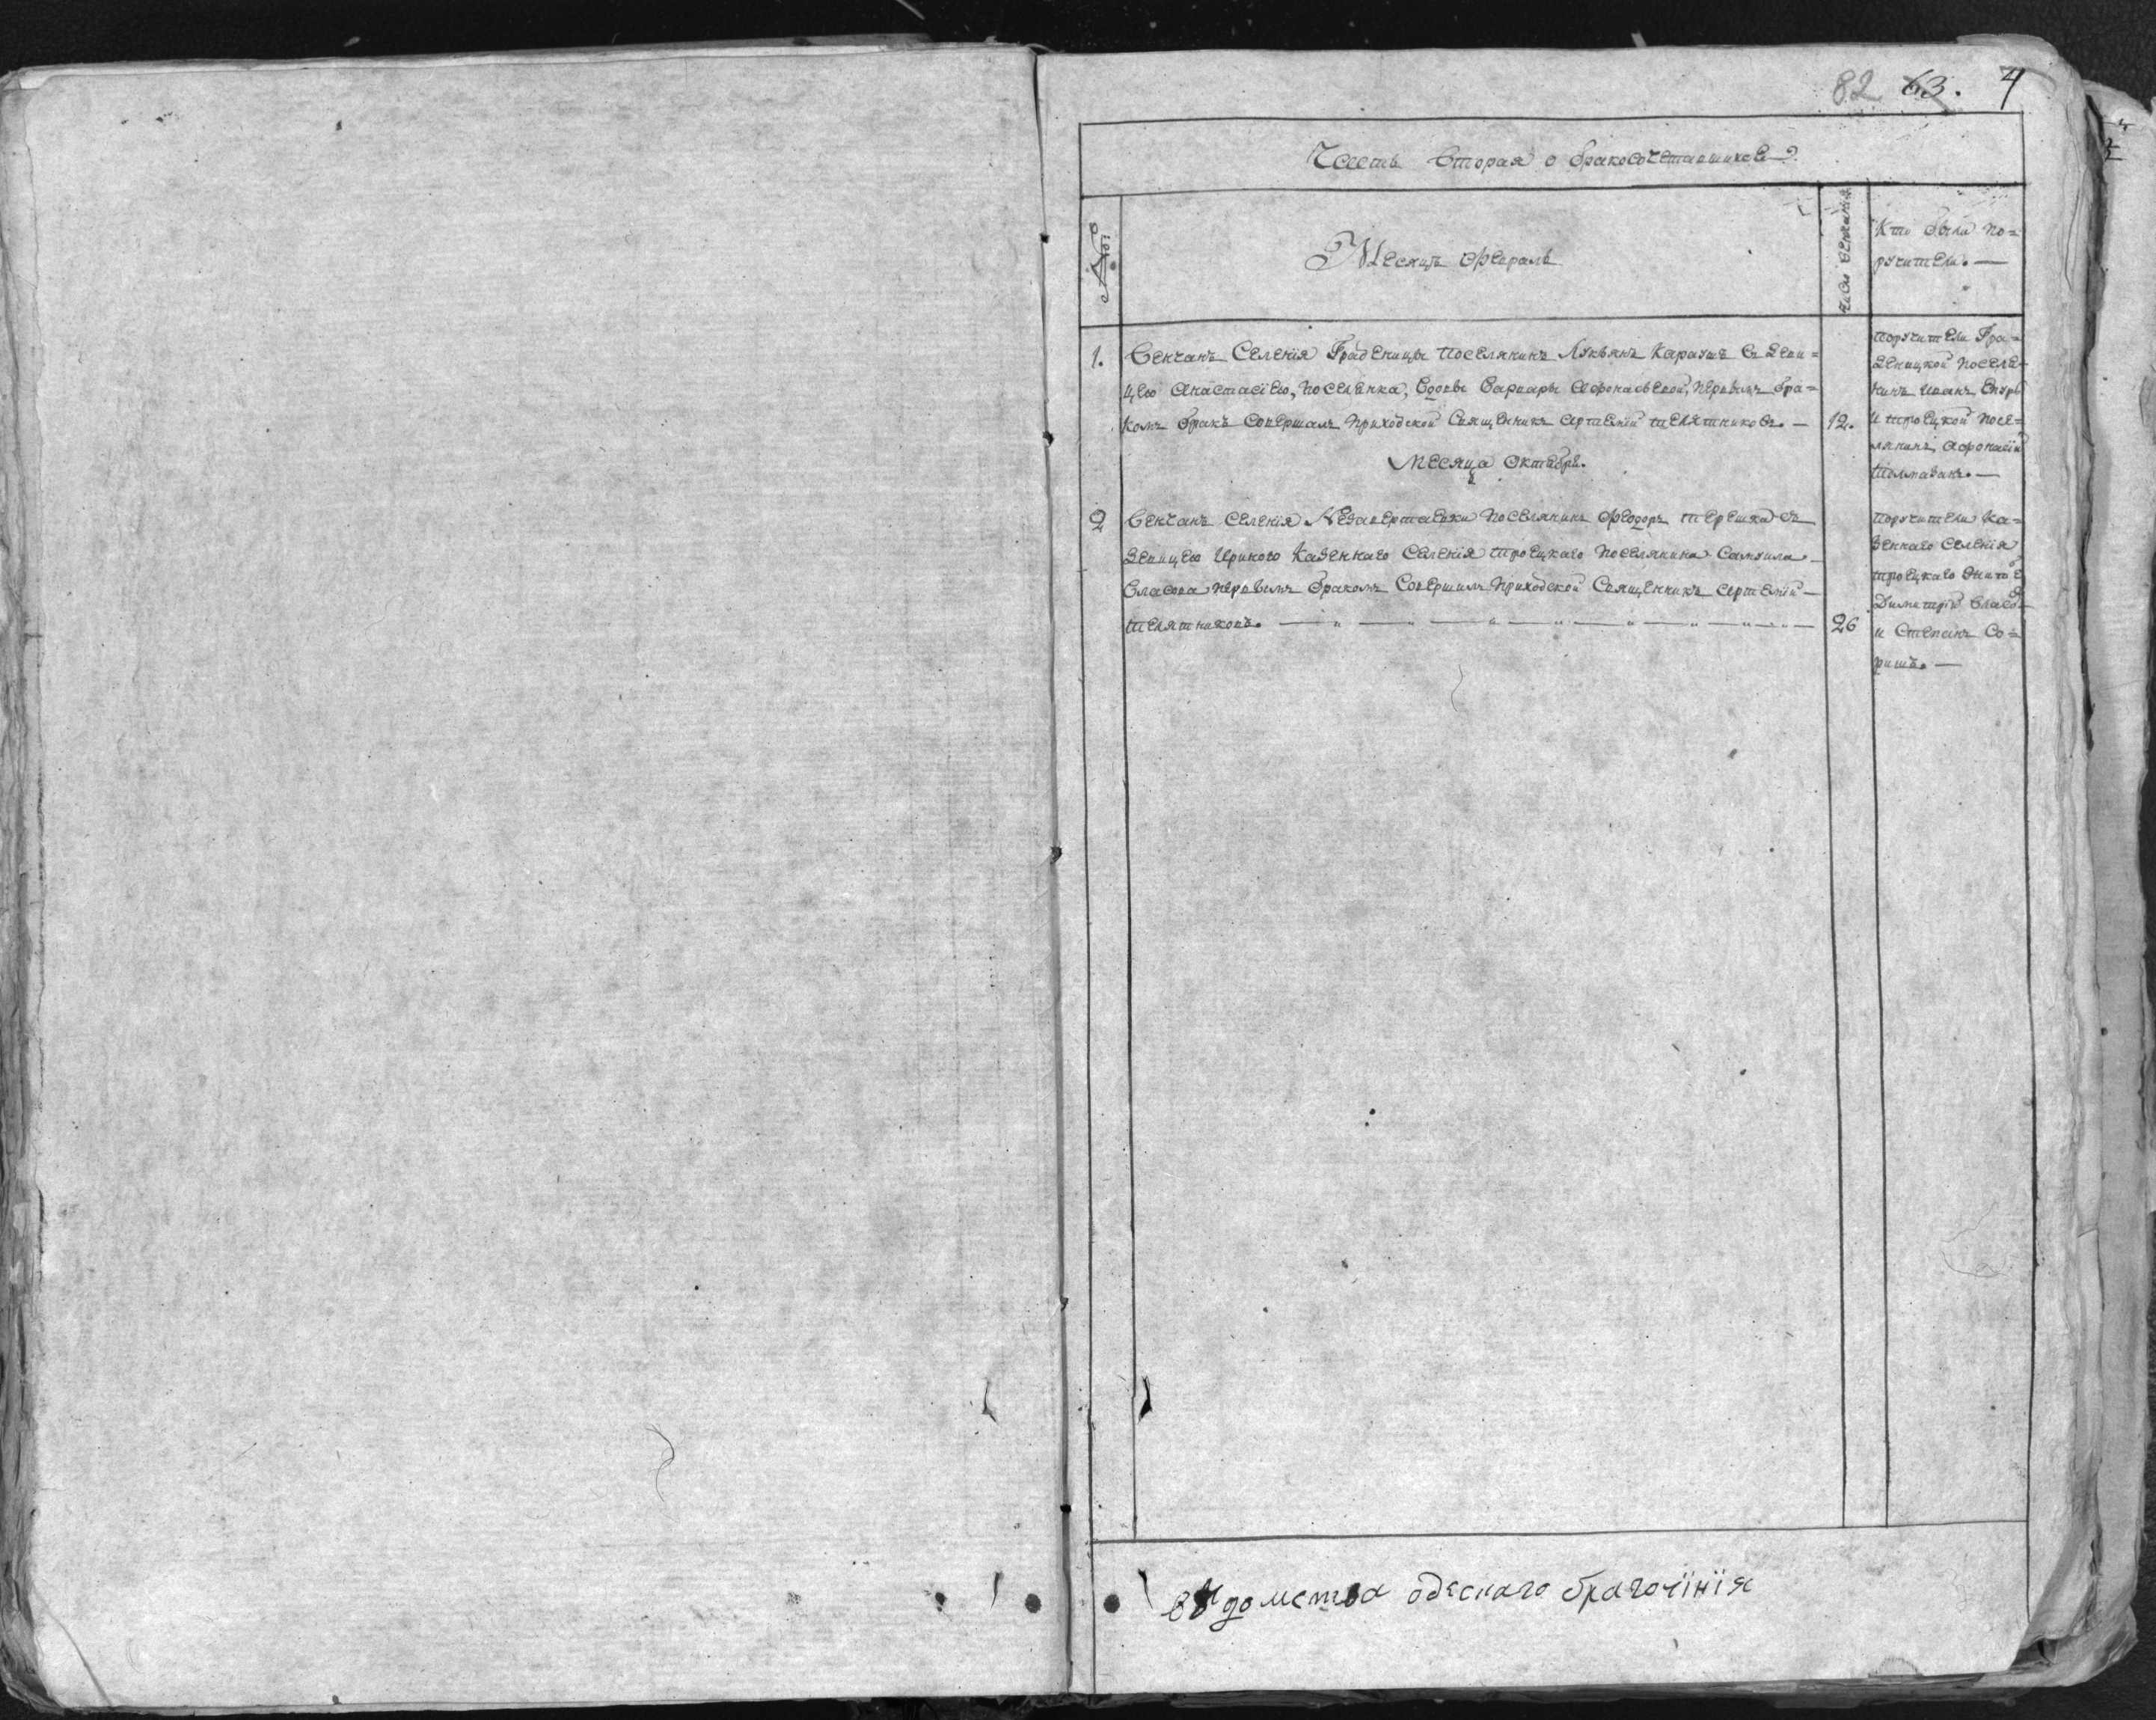 82 63. 4
Часть вторая о бракосочетавшихся
№
Месяцъ Февраль
число венчания
Кто были по=
ручители. —
1. Венчанъ Селенія Граденицы Поселянинъ Лукьянъ Караушъ съ Деви=
цею Анастасіею, поселенка, вдовы Варвары Афонасьевой, первымъ бра=
комъ бракъ Совершалъ Приходской Священникъ Артемій Телятниковъ. — 12.
Поручители Гра=
деницкой поселя=
нинъ Иванъ
и Троецкой посе=
лянинъ Афонасій
Месяца Октября.
2 Венчанъ Селенія Незавертаевки Поселянинъ Феодоръ Терешка съ
Девицею Ириною Казеннаго Селенія Троецкаго Поселянина Самуила
Власова первымъ бракомъ Совершилъ Приходской Священникъ Артемій —
Телятниковъ. — 26
Поручители Ка=
зеннаго Селенія
Троецкаго жители
Димитрій Власов
и Степанъ Со=
ришъ. —
вѣдомства одескаго благочінія